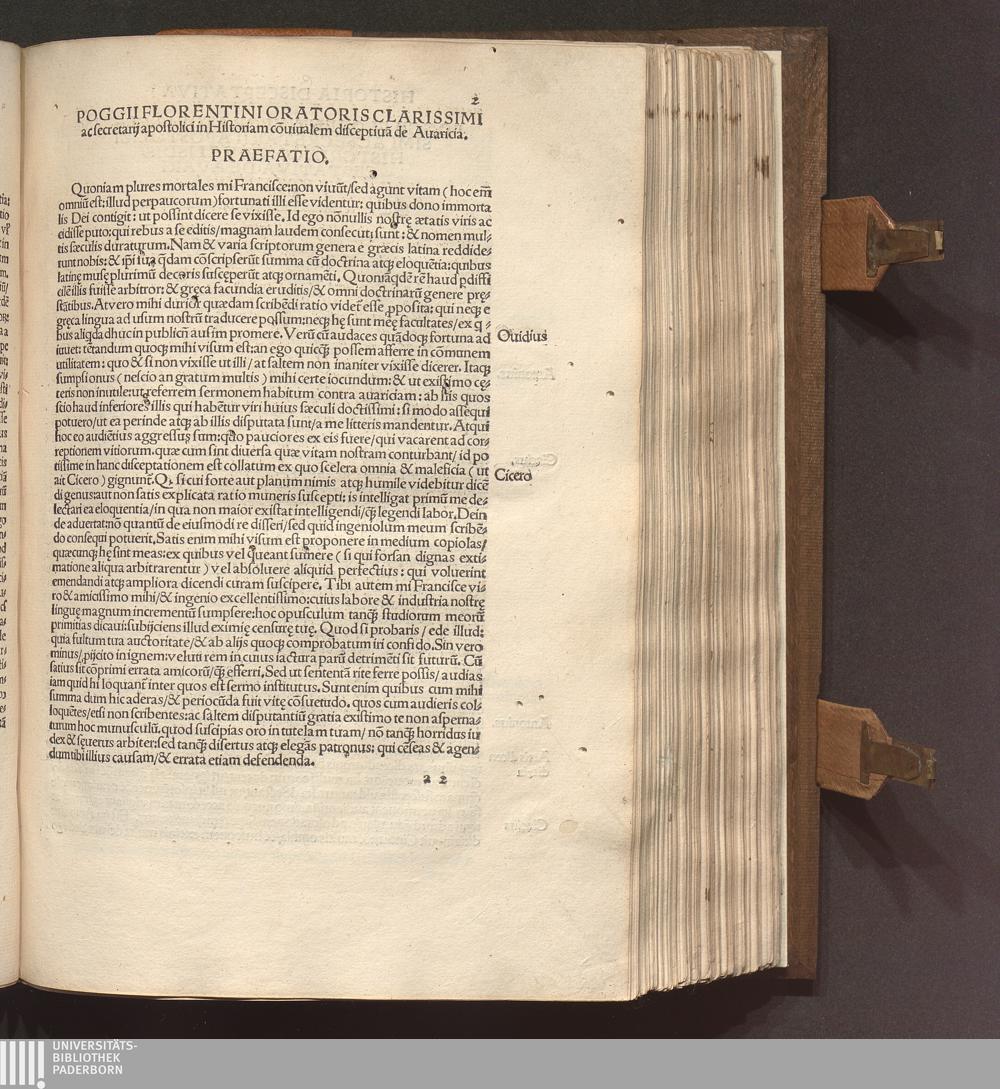 2
POGGII FLORENTINI ORATORIS CLARISSIMI
ac secretarij apostolici in Historiam cōuiualem disceptiuā de Auaricia.
PRAEFATIO.
Quoniam plures mortales mi Francisce: non viuūt/sed agunt vitam (hoc em̄
omniū est: illud perpaucorum) fortunati illi esse videntur: quibus dono immorta
lis Dei contigit: ut possint dicere se vixisse. Id ego nonullis nostrę ætatis viris ac
cidisse puto: qui rebus a se editis/magnam laudem consecuti sunt: & nomen mul⸗
tis sæculis duraturum. Nam & varia scriptorum genera e græcis latina reddide⸗
runt nobis: & ip̄i sua q̄dam cōscripserūt summa cū doctrina atq; eloquētia: quibus
latinę musę plurimū decoris suscęperūt atq; ornamēti. Quoniā q̄dē rē haud pdiffi
cilē illis fuisse arbitror: & gręca facundia eruditis/& omni doctrinarū genere prę⸗
stātibus. At vero mihi durior quædam scribēdi ratio videt̄ esse ꝓposita: qui neq; e
gręca lingua ad usum nostrū traducere possum: neq; hę sunt meę facultates/ex q⸗
bus aliq̄d adhuc in publicū ausim promere. Verū cū audaces quādoq; fortuna ad
iuuet: tētandum quoq; mihi visum est: an ego quicq̄; possem afferre in cōmunem
utilitatem: quo & si non vixisse ut illi/at saltem non inaniter vixisse dicerer. Itaq;
sumpsi onus (nescio an gratum multis) mihi certe iocundum: & ut existimo cę⸗
teris non inutile: ut referrem sermonem habitum contra auariciam: ab his quos
scio haud inferiores illis qui habētur viri huius sæculi doctissimi: si modo assequi
potuero/ut ea perinde atq; ab illis disputata sunt/a me litteris mandentur. Atqui
hoc eo audiētius aggressus sum: quo pauciores ex eis fuere/qui vacarent ad cor⸗
reptionem vitiorum. quæ cum sint diuersa quæ vitam nostram conturbant/id po
tissime in hanc disceptationem est collatum ex quo scelera omnia & maleficia (ut
ait Cicero) gignunt̄. Q̨ si cui forte aut planum nimis atq; humile videbitur dicē
di genus: aut non satis explicata ratio muneris suscepti: is intelligat primū me de⸗
lectari ea eloquentia/in qua non maior existat intelligendi/q̄; legendi labor. Dein
de aduertat: nō quantū de eiusmodi re disseri/sed quid ingeniolum meum scribē⸗
do consequi potuerit. Satis enim mihi visum est proponere in medium copiolas/
quæcunq; hę sint meas: ex quibus vel queant sumere (si qui forsan dignas exti⸗
matione aliqua arbitrarentur) vel absoluere aliquid perfectius: qui voluerint
emendandi atq; ampliora dicendi curam suscipere. Tibi autem mi Francisce vi⸗
ro & amicissimo mihi/& ingenio excellentissimo: cuius labore & industria nostrę
linguę magnum incrementū sumpsere: hoc opusculum tanq̄; studiorum meorū
primitias dicaui: subijciens illud eximię censurę tuę. Quod si probaris/ede illud:
quia fultum tua auctoritate/& ab alijs quoq; comprobatum iri confido. Sin vero
minus/pijcito in ignem: veluti rem in cuius iactura parū detrimēti sit futurū. Cū
satius sit cōprimi errata amicorū/q̄; efferri. Sed ut sententā rite ferre possis/audias
iam quid hi loquant̄ inter quos est sermo institutus. Sunt enim quibus cum mihi
summa dum hic aderas/& periocūda fuit vitę cōsuetudo. quos cum audieris col⸗
loquētes/etsi non scribentes: ac saltem disputantiū gratia existimo te non asperna⸗
turum hoc munusculū. quod suscipias oro in tutelam tuam/nō tanq̄; horridus iu
dex & seuerus arbiter: sed tanq̄; disertus atq; elegās patronus: qui cēseas & agen⸗
dum tibi illius causam/& errata etiam defendenda.
Ouidius
Cicero
a 2
UNIVERSITÄTS-
BIBLIOTHEK
PADERBORN